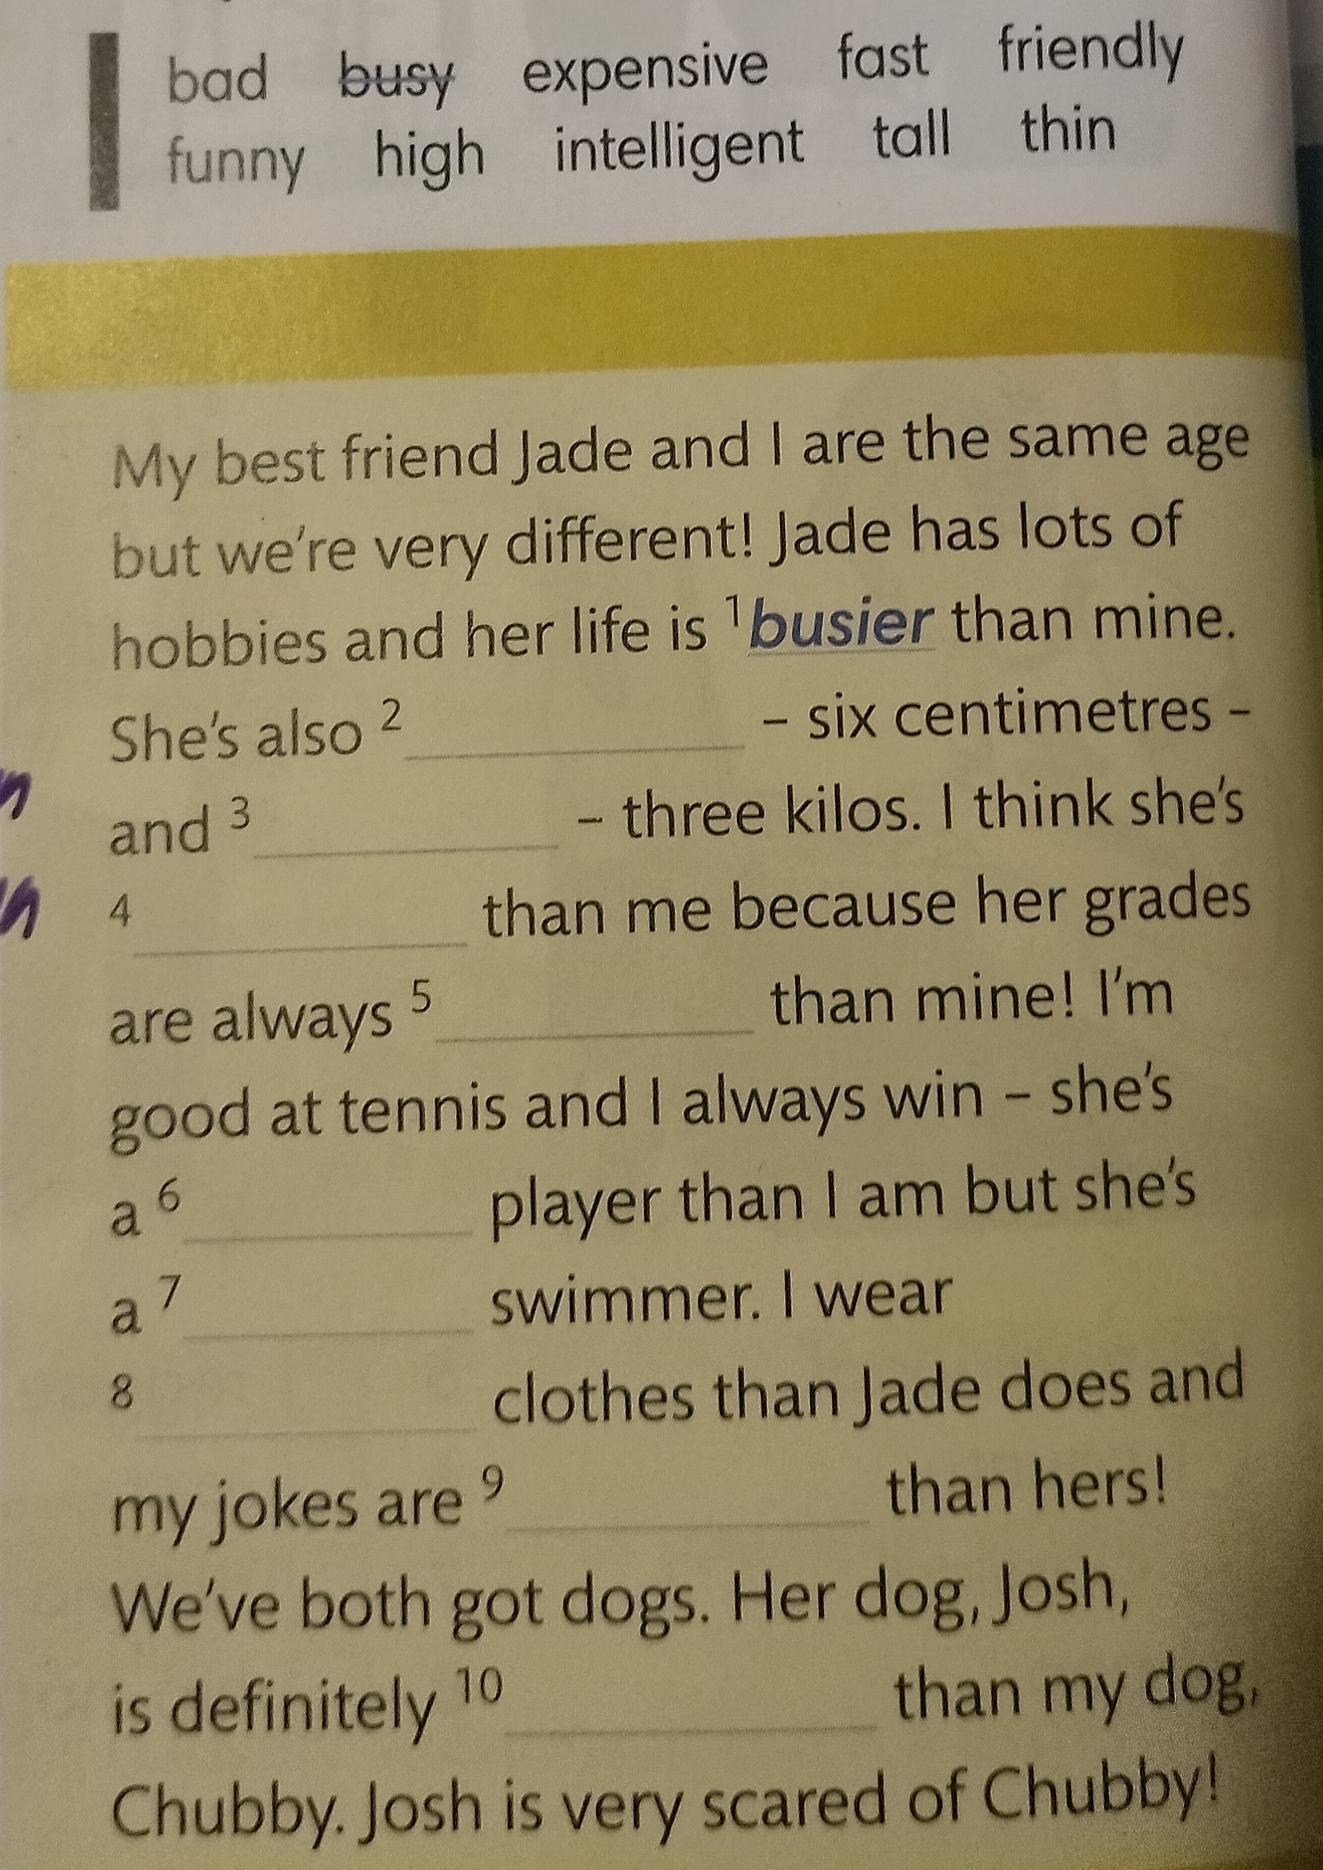 bad busy expensive fast friendly
funny high intelligent tall thin
My best friend Jade and I are the same age
but we're very different! Jade has lots of
hobbies and her life is 1 busier than mine.
She's also 2 – six centimetres –
and 3 – three kilos. I think she's
4 than me because her grades
are always 5 than mine! I'm
good at tennis and I always win – she's
a 6 player than I am but she's
a 7 swimmer. I wear
8 clothes than Jade does and
my jokes are 9 than hers!
We've both got dogs. Her dog, Josh,
is definitely 10 than my dog,
Chubby. Josh is very scared of Chubby!